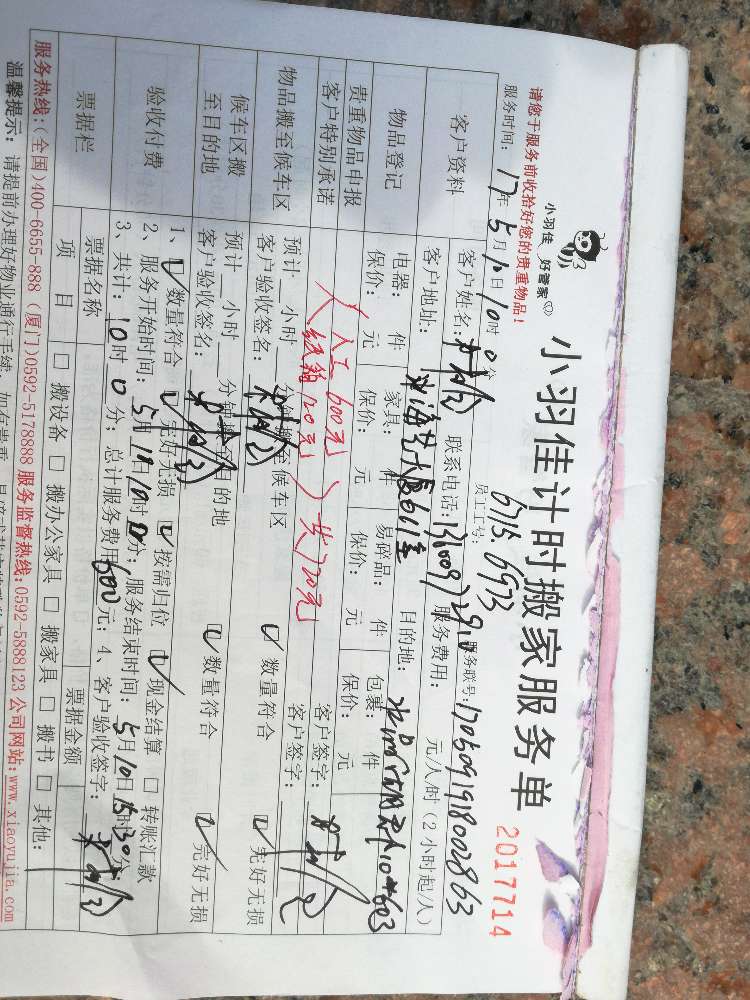 小羽佳 好管家
小羽佳计时搬家服务单
请您于服务前收拾好您的贵重物品!
员工工号: 6715 6973
2017714
服务时间: 17年5月10日10时0分
服务联号: 1705091918002863
客户资料
客户姓名:
联系电话:
服务费用: 元/人/时 (2小时起/人)
客户地址:
目的地:
物品登记
电器: 件 家具: 件 易碎品: 件 包裹: 件
保价: 元 保价: 元 保价: 元 保价: 元
贵重物品申报
客户特别承诺
人工600元
纸箱120元 共720元
客户签字:
物品搬至候车区
预计: 小时 分钟搬至候车区
数量符合 完好无损
客户验收签名:
候车区搬至目的地
预计 小时 分钟搬至目的地
数量符合 完好无损
客户验收签名:
验收付费
1、 数量符合 完好无损 按需归位 现金结算 转账汇款
2、服务开始时间: 5月10日10时0分; 服务结束时间: 5月10日15时30分
3、共计: 时0分; 总计服务费用600元; 4、客户验收签字:
票据栏
票据名称 票据金额
项目 搬设备 搬办公家具 搬家具 搬书 其他:
服务热线:(全国)400-6655-888 (厦门)0592-5178888 服务监督热线:0592-5888123 公司网站:www.xiaoyujia.com
温馨提示: 请提前办理好物业通行手续,